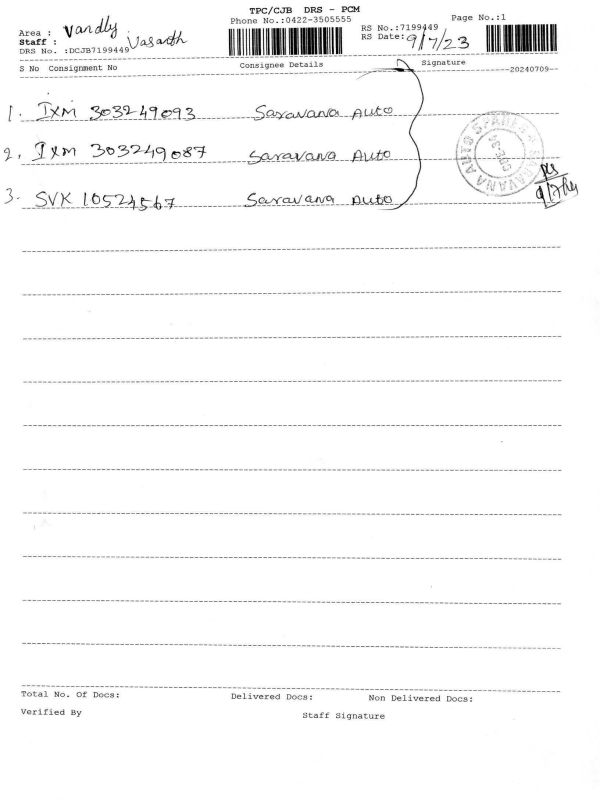 TPC/CJB DRS - PCM
Phone No.:0422-3505555
Page No.:1
Area : Vandly
RS No.:7199449
Staff : Vasanth
RS Date: 9/7/23
DRS No. :DCJB7199449
S No Consignment No Consignee Details Signature
20240709
1. IXM 303249093 Saravana Auto
2. IXM 303249087 Saravana Auto
3. SVK 10524567 Saravana Auto
SARAVANA AUTO SPARES
9/7/24
Total No. Of Docs: Delivered Docs: Non Delivered Docs:
Verified By Staff Signature